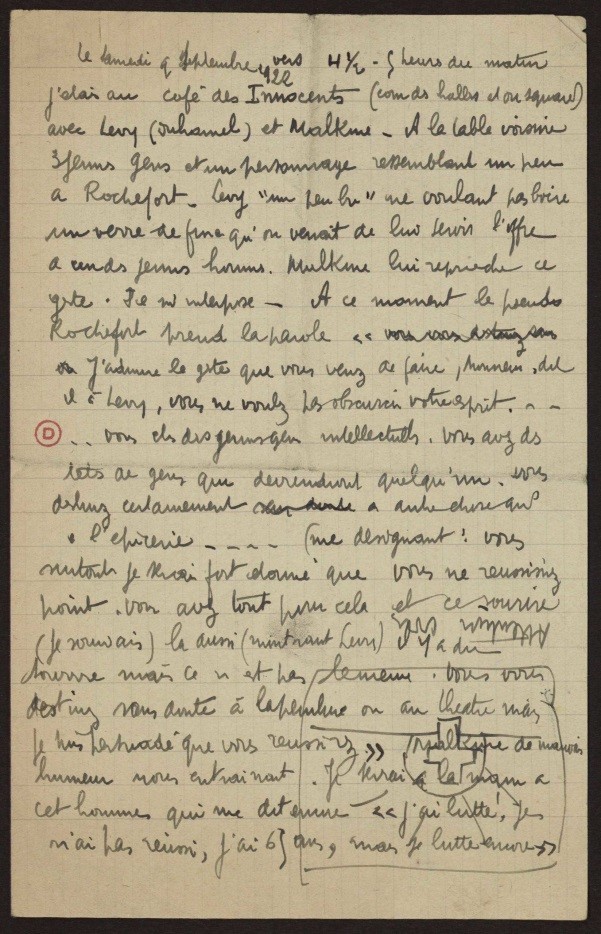 Le Samedi 9 Septembre 1922 vers 4 1/2 - 5 heures du matin
j'étais au café des Innocents (coin ds halles et du square)
avec Levy (Duhamel) et Malkine - A la table voisine
3 jeunes gens et un personnage ressemblant un peu
a Rochefort. Levy "un peu bu" ne voulant pas boire
un verre de fine qu'on venait de lui servir l'offre
a un ds jeunes hommes. Malkine lui reproche ce
geste. Je m'interpose - A ce moment le pseudo
Rochefort prend la parole « vous vous
J'admire le geste que vous venez de faire, Monsieur, dit
il à Levy, vous ne voulez pas obscurcir votre esprit. - -
D .. vous etes des jeunes gens intellectuels. vous avez ds
tetes de gens qui deviendront quelqu'un. vous
destinez certainement sans doute a autre chose qu'
a l'epicerie - - - - (me designant : vous
surtout je serai fort etonné que vous ne reussissiez
point. vous avez tout pour cela et ce sourire
(je souriais) la aussi (montrant Levy) il y a du
sourire mais ce n'est pas le meme. vous vous
destinez sans doute à la peinture ou au theatre mais
je suis persuadé que vous reussirez » Malkine de mauvais
humeur nous entrainant. Je serrai la main a
cet hommes qui me dit encore « j'ai lutté, je
n'ai pas reussi, j'ai 65 ans, mais je lutte encore »